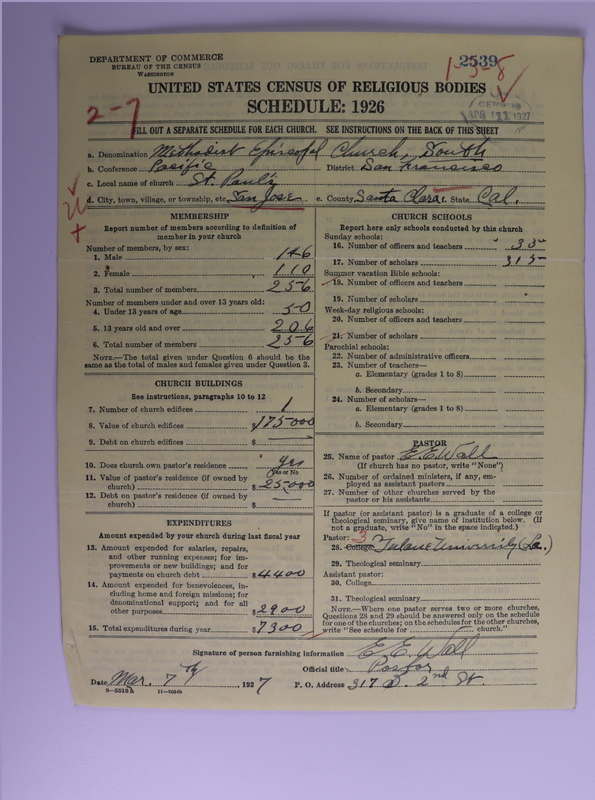 DEPARTMENT OF COMMERCE
BUREAU OF THE CENSUS
WASHINGTON
2539
1-3-8
UNITED STATES CENSUS OF RELIGIOUS BODIES
SCHEDULE: 1926
2-7
CENSUS
APR 11 1927
FILL OUT A SEPARATE SCHEDULE FOR EACH CHURCH. SEE INSTRUCTIONS ON THE BACK OF THIS SHEET
a. Denomination Methodist Episcopal Church, South
b. Conference Pacific District San Francisco
c. Local name of church St. Paul's
d. City, town, village, or township, etc. San Jose e. County Santa Clara f. State Cal.
MEMBERSHIP
Report number of members according to definition of
member in your church
Number of members, by sex:
1. Male 146
2. Female 110
3. Total number of members 256
Number of members under and over 13 years old:
4. Under 13 years of age 50
5. 13 years old and over 206
6. Total number of members 256
NOTE.—The total given under Question 6 should be the
same as the total of males and females given under Question 3.
CHURCH BUILDINGS
See instructions, paragraphs 10 to 12
7. Number of church edifices 1
8. Value of church edifices $175000
9. Debt on church edifices $ —
10. Does church own pastor's residence yes
Yes or No
11. Value of pastor's residence (if owned by
church) $25,000
12. Debt on pastor's residence (if owned by
church) $ —
EXPENDITURES
Amount expended by your church during last fiscal year
13. Amount expended for salaries, repairs,
and other running expenses; for im-
provements or new buildings; and for
payments on church debt $4400
14. Amount expended for benevolences, in-
cluding home and foreign missions; for
denominational support; and for all
other purposes $2900
15. Total expenditures during year $7300
CHURCH SCHOOLS
Report here only schools conducted by this church
Sunday schools:
16. Number of officers and teachers 35
17. Number of scholars 315
Summer vacation Bible schools:
18. Number of officers and teachers
19. Number of scholars
Week-day religious schools:
20. Number of officers and teachers
21. Number of scholars
Parochial schools:
22. Number of administrative officers
23. Number of teachers—
a. Elementary (grades 1 to 8)
b. Secondary
24. Number of scholars—
a. Elementary (grades 1 to 8)
b. Secondary
PASTOR
25. Name of pastor E. E. Wall
(If church has no pastor, write "None")
26. Number of ordained ministers, if any, em-
ployed as assistant pastors
27. Number of other churches served by the
pastor
If pastor (or assistant pastor) is a graduate of a college or
theological seminary, give name of institution below. (If
not a graduate, write "No" in the space indicated.)
Pastor: 3
28. College Tulane University (La.)
29. Theological seminary
Assistant pastor:
30. College
31. Theological seminary
NOTE.—Where one pastor serves two or more churches,
Questions 28 and 29 should be answered only on the schedule
for one of the churches; on the schedules for the other churches,
write "See schedule for church."
Signature of person furnishing information E. E. Wall
Official title Pastor
Date Mar. 7th, 1927 P. O. Address 317 S. 2nd St.
8-5518a